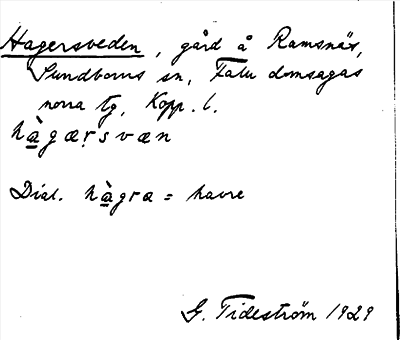 Hagersveden, gård å Ramsnäs,
Sundborns sn, Falu domsagas
norra tg, Kopp. l.
hàgærsvæn
Dial. hàgra = havre
G. Tideström 1929